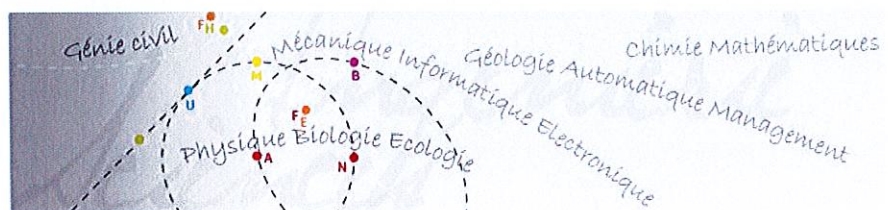 Génie civil
FH
Mécanique Informatique Electronique
Géologie Automatique Management
Chimie Mathématiques
M
B
U
FE
Physique Biologie Ecologie
A
N